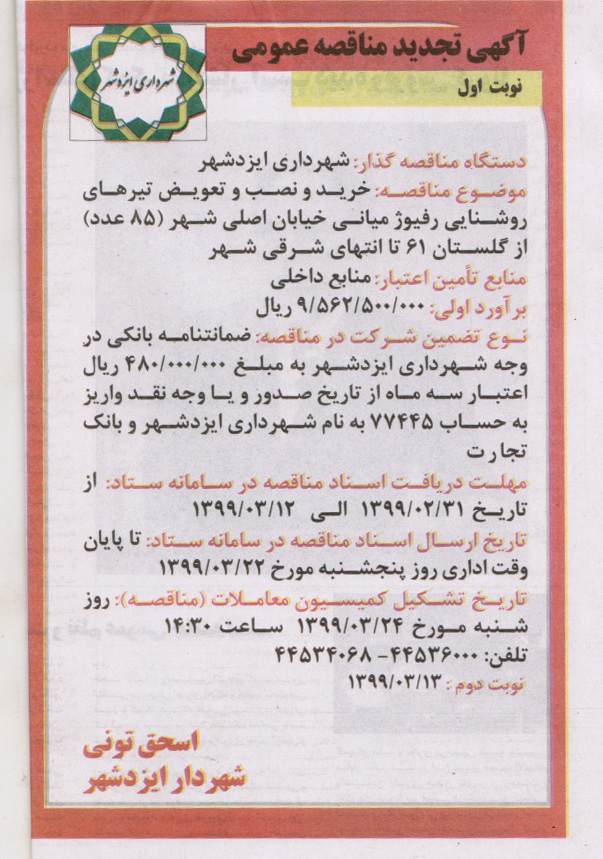 آگهی تجدید مناقصه عمومی
نوبت اول
شهرداری ایزدشهر
دستگاه مناقصه گذار: شهرداری ایزدشهر
موضوع مناقصه: خرید و نصب و تعویض تیرهای
روشنایی رفیوژ میانی خیابان اصلی شهر (۸۵ عدد)
از گلستان ۶۱ تا انتهای شرقی شهر
منابع تأمین اعتبار: منابع داخلی
برآورد اولی: ۹/۵۶۲/۵۰۰/۰۰۰ ریال
نوع تضمین شرکت در مناقصه: ضمانتنامه بانکی در
وجه شهرداری ایزدشهر به مبلغ ۴۸۰/۰۰۰/۰۰۰ ریال
اعتبار سه ماه از تاریخ صدور و یا وجه نقد واریز
به حساب ۷۷۴۴۵ به نام شهرداری ایزدشهر و بانک
تجارت
مهلت دریافت اسناد مناقصه در سامانه ستاد: از
تاریخ ۱۳۹۹/۰۲/۳۱ الی ۱۳۹۹/۰۳/۱۲
تاریخ ارسال اسناد مناقصه در سامانه ستاد: تا پایان
وقت اداری روز پنجشنبه مورخ ۱۳۹۹/۰۳/۲۲
تاریخ تشکیل کمیسیون معاملات (مناقصه): روز
شنبه مورخ ۱۳۹۹/۰۳/۲۴ ساعت ۱۴:۳۰
تلفن: ۴۴۵۳۶۰۰۰- ۴۴۵۳۴۰۶۸
نوبت دوم: ۱۳۹۹/۰۳/۱۳
اسحق تونی
شهردار ایزدشهر